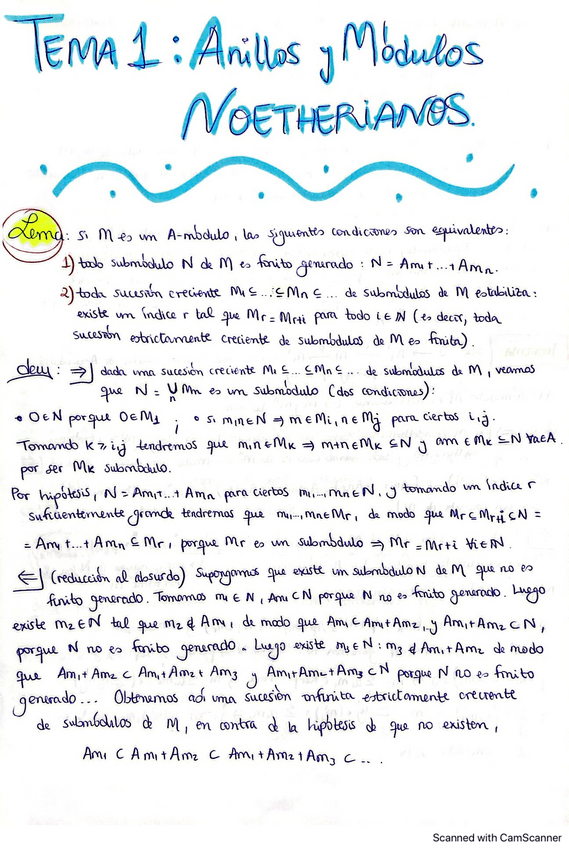 TEMA 1: Anillos y Módulos
NOETHERIANOS.
Lema: si M es un A-módulo, las siguientes condiciones son equivalentes:
1) todo submódulo N de M es finito generado: N = Am₁+...+Amₙ.
2) toda sucesión creciente M₁ ⊆ ... ⊆ Mₙ ⊆ ... de submódulos de M estabiliza:
existe un índice r tal que Mr = Mr+i para todo i ∈ ℕ (es decir, toda
sucesión estrictamente creciente de submódulos de M es finita).
dem: ⇒] dada una sucesión creciente M₁ ⊆ ... ⊆ Mₙ ⊆ ... de submódulos de M, veamos
que N = ⋃ₙ Mₙ es un submódulo (dos condiciones):
• 0∈N porque 0∈M₁ ; • si m,n∈N ⇒ m∈Mi, n∈Mj para ciertos i,j.
Tomando k ≥ i,j tendremos que m,n∈Mk ⇒ m+n∈Mk ⊆ N y am ∈ Mk ⊆ N ∀a∈A.
por ser Mk submódulo.
Por hipótesis, N = Am₁+...+Amₙ para ciertos m₁,...,mₙ∈N, y tomando un índice r
suficientemente grande tendremos que m₁,...,mₙ∈Mr, de modo que Mr ⊆ Mr+i ⊆ N =
= Am₁+...+Amₙ ⊆ Mr, porque Mr es un submódulo ⇒ Mr = Mr+i ∀i∈ℕ.
⇐] (reducción al absurdo) Supongamos que existe un submódulo N de M que no es
finito generado. Tomamos m₁ ∈ N, Am₁ ⊂ N porque N no es finito generado. Luego
existe m₂∈N tal que m₂ ∉ Am₁, de modo que Am₁ ⊂ Am₁+Am₂, y Am₁+Am₂ ⊂ N,
porque N no es finito generado. Luego existe m₃∈N : m₃ ∉ Am₁+Am₂ de modo
que Am₁+Am₂ ⊂ Am₁+Am₂+Am₃ y Am₁+Am₂+Am₃ ⊂ N porque N no es finito
generado... Obtenemos así una sucesión infinita estrictamente creciente
de submódulos de M, en contra de la hipótesis de que no existen,
Am₁ ⊂ Am₁+Am₂ ⊂ Am₁+Am₂+Am₃ ⊂ ...
Scanned with CamScanner